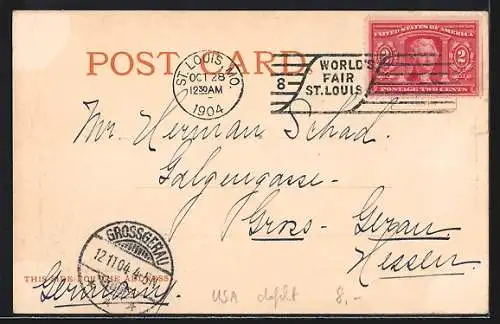 POST CARD.
ST. LOUIS, MO.
OCT 28
12 30 AM
1904
8
WORLD'S
FAIR
ST. LOUIS
UNITED STATES OF AMERICA
2 2
POSTAGE TWO CENTS
Mr. Herman Schad.
Galgengasse-
Gross-Gerau.
Hessen.
GROSSGERAU
12.11.04. 4-5N
THIS SIDE FOR THE ADDRESS
Germany.
USA defekt 8,-